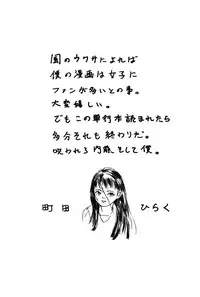 風のウワサによれば
僕の漫画は女子に
ファンが多いとの事。
大変嬉しい。
でもこの単行本読まれたら
多分それも終わりだ。
呪われろ内臓として僕。
町田 ひらく